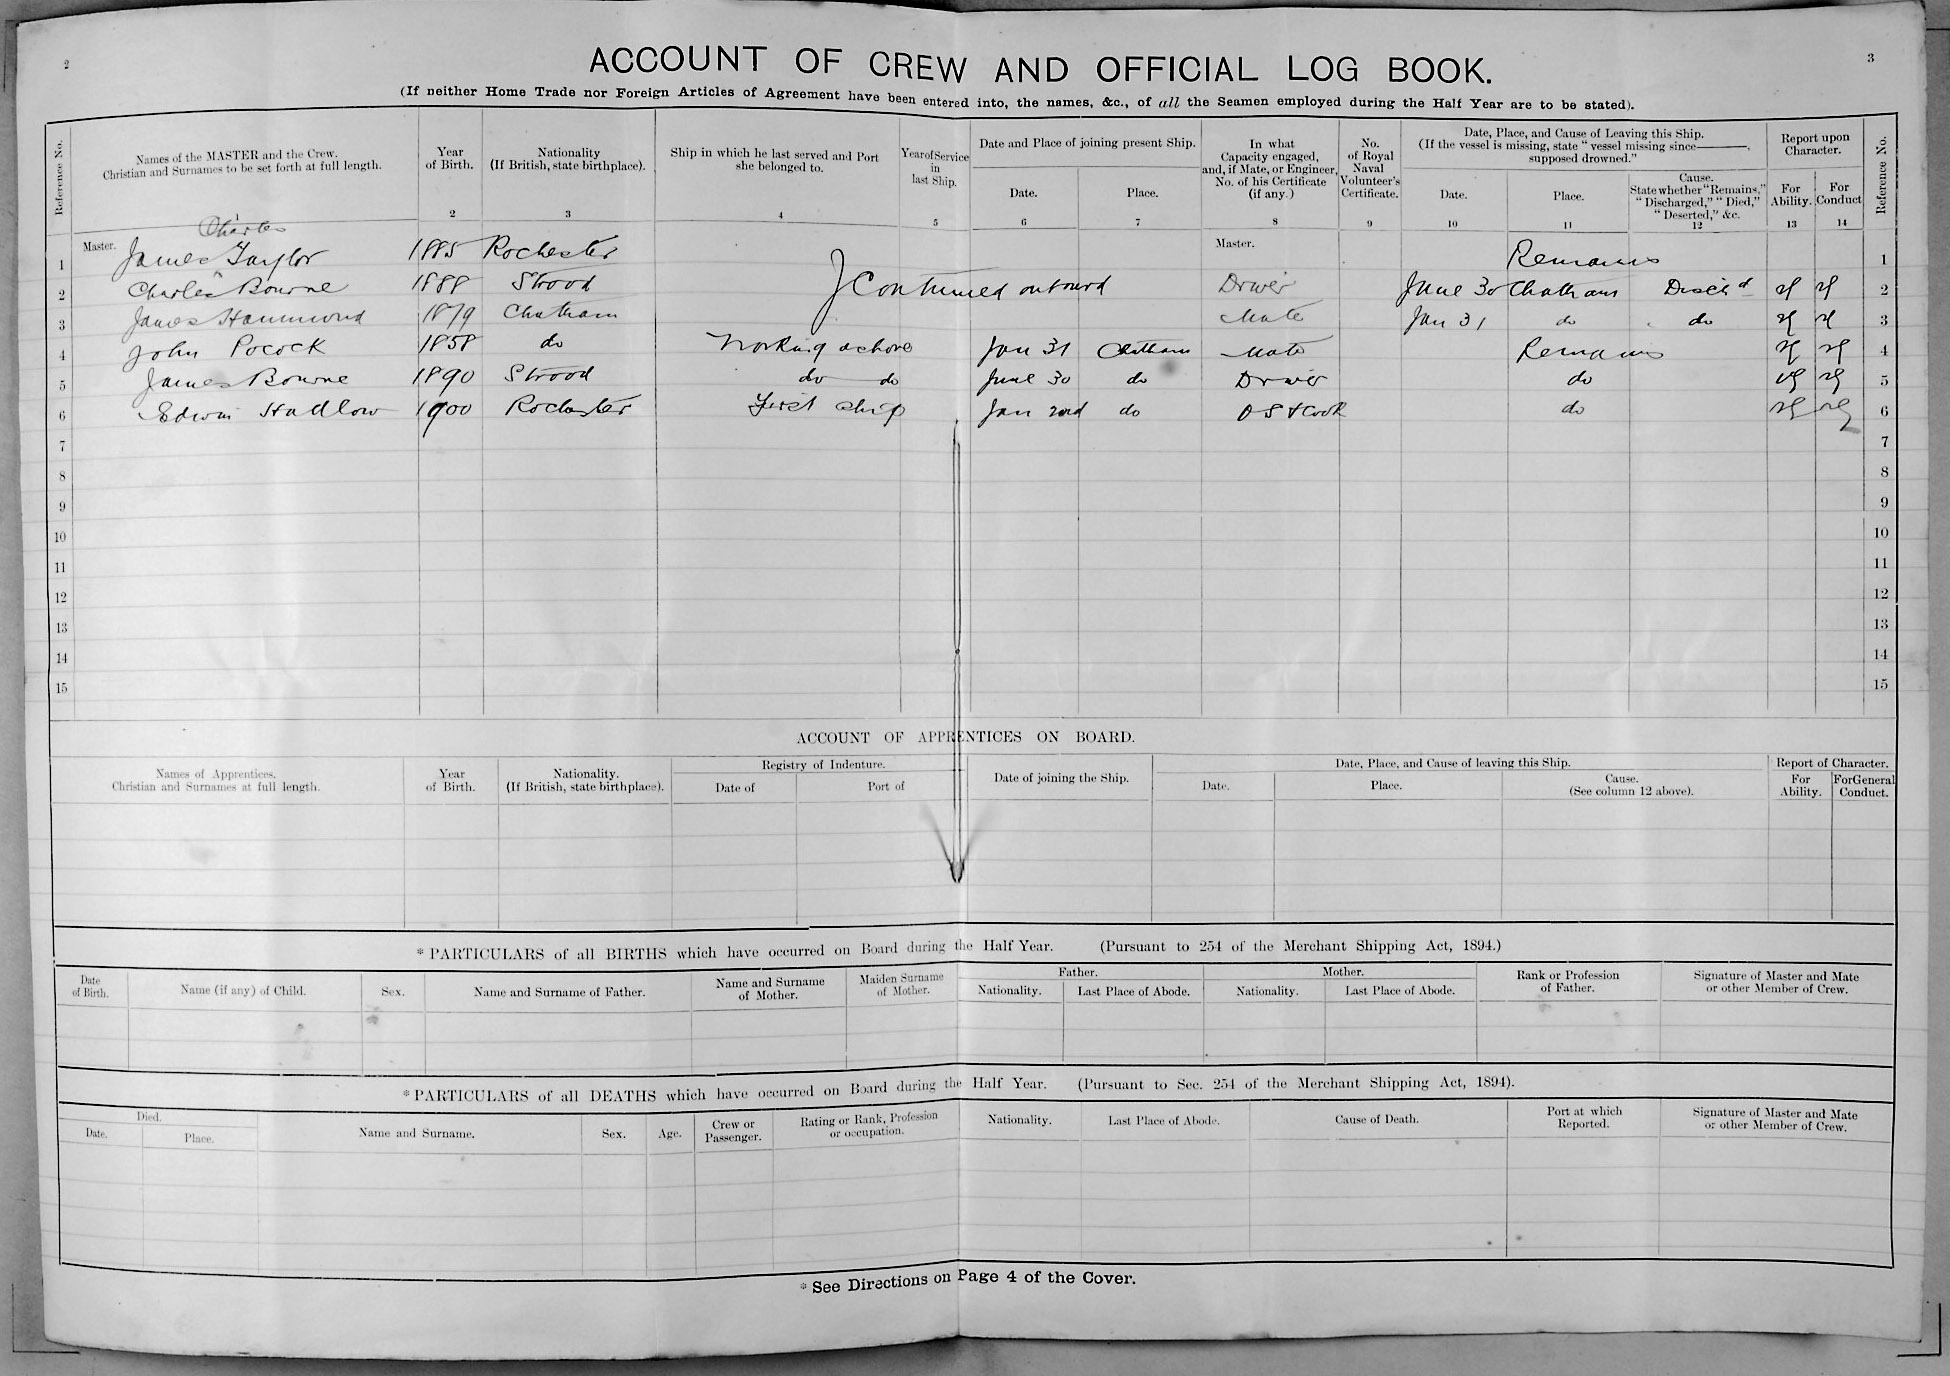 2
3
ACCOUNT OF CREW AND OFFICIAL LOG BOOK.
(If neither Home Trade nor Foreign Articles of Agreement have been entered into, the names, &c., of all the Seamen employed during the Half Year are to be stated).
Reference No.
Names of the MASTER and the Crew. Christian and Surnames to be set forth at full length.
Year of Birth.
Nationality (If British, state birthplace).
Ship in which he last served and Port she belonged to.
Year of Service in last Ship.
Date and Place of joining present Ship.
Date.
Place.
In what Capacity engaged, and, if Mate, or Engineer, No. of his Certificate (if any.)
No. of Royal Naval Volunteer's Certificate.
Date, Place, and Cause of Leaving this Ship. (If the vessel is missing, state "vessel missing since———, supposed drowned."
Date.
Place.
Cause. State whether "Remains," "Discharged," "Died," "Deserted," &c.
Report upon Character.
For Ability.
For Conduct
Reference No.
1 2 3 4 5 6 7 8 9 10 11 12 13 14
Charles
1 Master. James Taylor 1885 Rochester Master. Remains 1
2 Charles Bourne 1888 Strood Continued onboard Driver June 30 Chatham Disch d 2
3 James Hammond 1879 Chatham Mate Jan 31 do do 3
4 John Pocock 1858 do Working ashore Jan 31 Chatham Mate Remains 4
5 James Bourne 1890 Strood do do June 30 do Driver do 5
6 Edwin Hadlow 1900 Rochester First ship Jan 2nd do OS & Cook do 6
7 7
8 8
9 9
10 10
11 11
12 12
13 13
14 14
15 15
ACCOUNT OF APPRENTICES ON BOARD.
Names of Apprentices. Christian and Surnames at full length.
Year of Birth.
Nationality. (If British, state birthplace).
Registry of Indenture.
Date of
Port of
Date of joining the Ship.
Date, Place, and Cause of leaving this Ship.
Date.
Place.
Cause. (See column 12 above).
Report of Character.
For Ability.
For General Conduct.
* PARTICULARS of all BIRTHS which have occurred on Board during the Half Year. (Pursuant to 254 of the Merchant Shipping Act, 1894.)
Date of Birth.
Name (if any) of Child.
Sex.
Name and Surname of Father.
Name and Surname of Mother.
Maiden Surname of Mother.
Father.
Nationality.
Last Place of Abode.
Mother.
Nationality.
Last Place of Abode.
Rank or Profession of Father.
Signature of Master and Mate or other Member of Crew.
* PARTICULARS of all DEATHS which have occurred on Board during the Half Year. (Pursuant to Sec. 254 of the Merchant Shipping Act, 1894).
Died.
Date.
Place.
Name and Surname.
Sex.
Age.
Crew or Passenger.
Rating or Rank, Profession or occupation.
Nationality.
Last Place of Abode.
Cause of Death.
Port at which Reported.
Signature of Master and Mate or other Member of Crew.
* See Directions on Page 4 of the Cover.